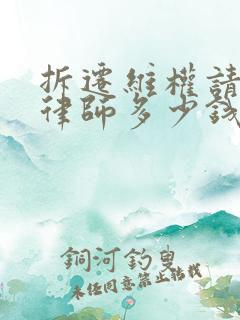 拆遷維權請
律師多少錢
銅河釣叟
未經同意禁止轉載